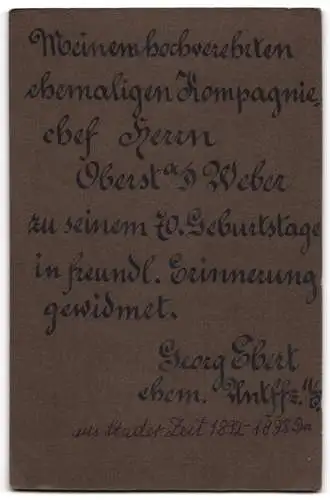 Meinem hochverehrten
ehemaligen Kompagnie-
chef Herrn
Oberst a/D Weber
zu seinem 70. Geburtstage
in freundl. Erinnerung
gewidmet.
Georg Ebert
ehem. Untffz.
der Zeit 1892-1898